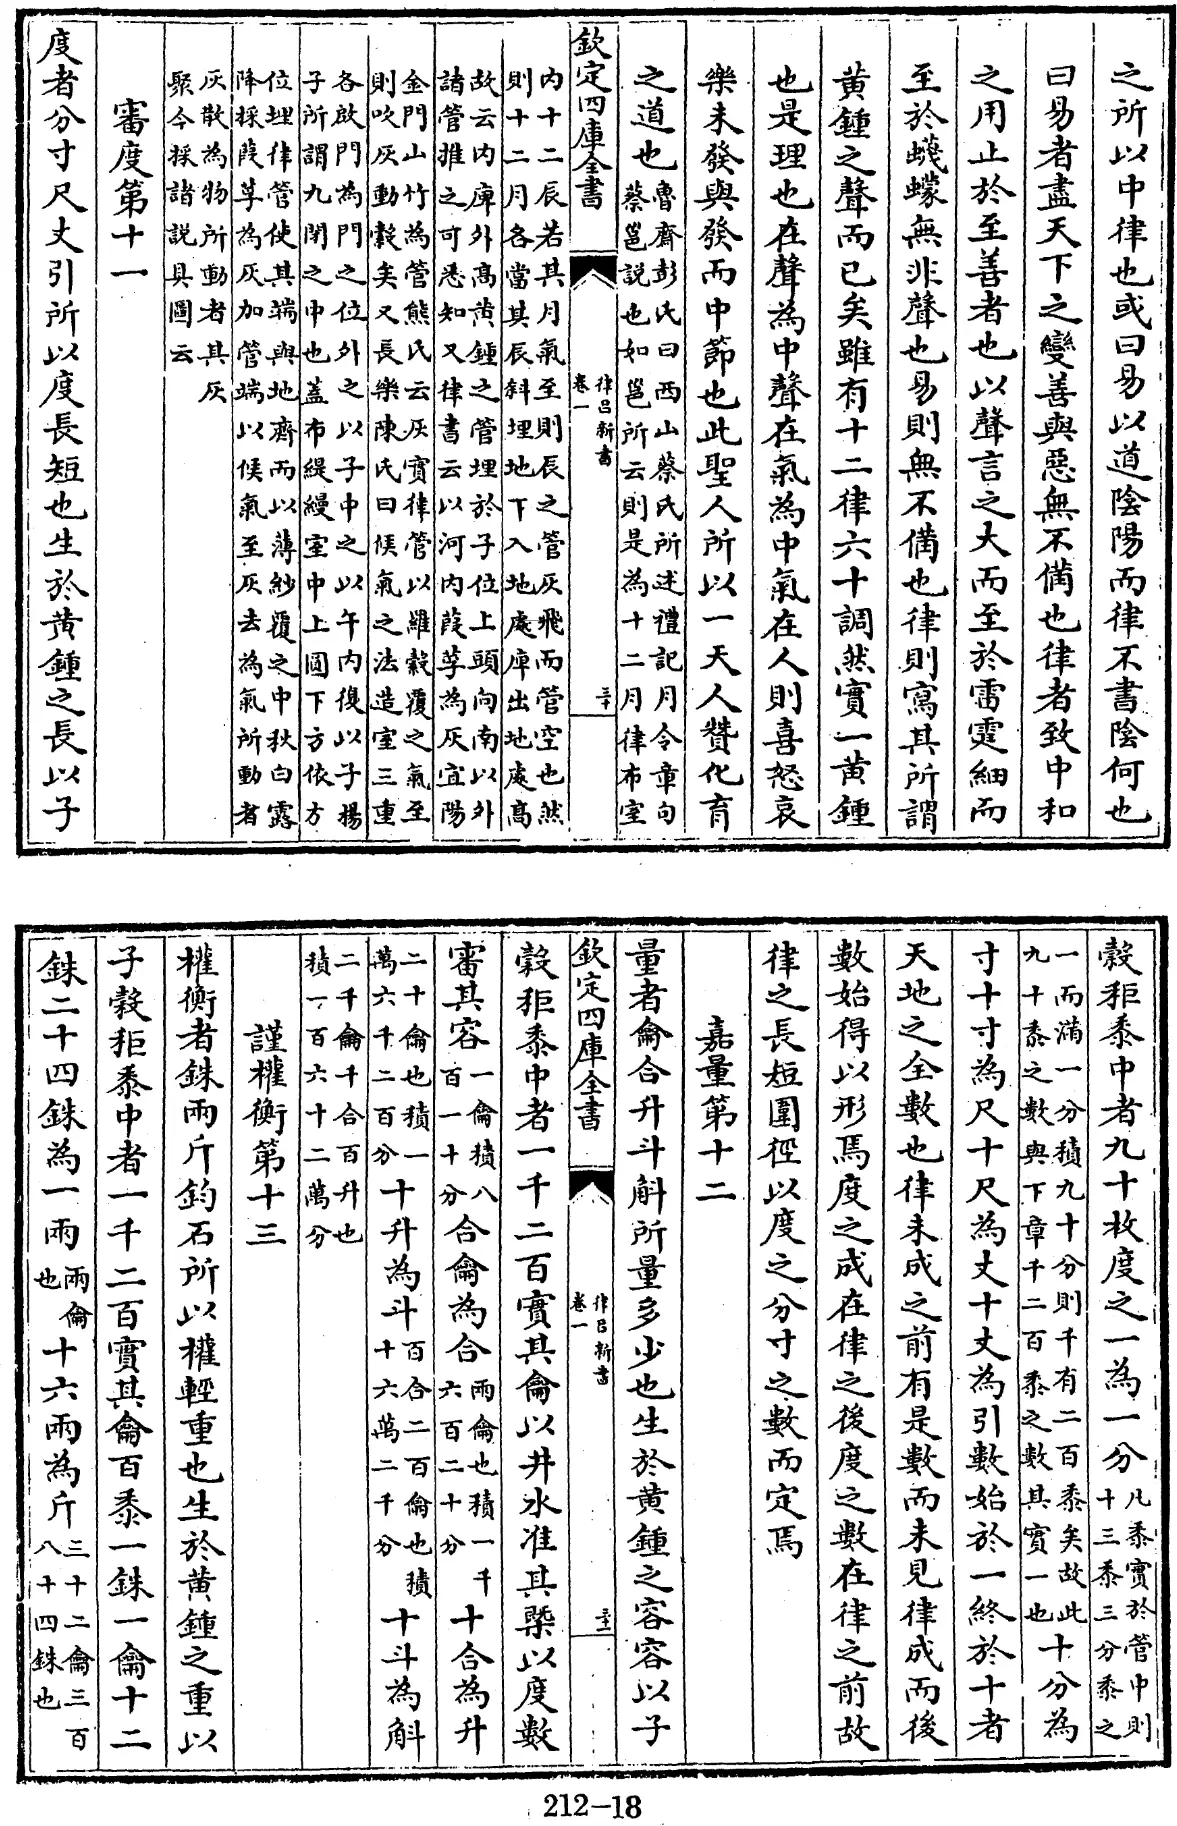 之所以中律也或曰易以道陰陽而律不書陰何也
曰易者盡天下之變善與惡無不備也律者致中和
之用止於至善者也以聲言之大而至於雷霆細而
至於蠛蠓無非聲也易則無不備也律則寫其所謂
黄鍾之聲而已矣雖有十二律六十調然實一黄鍾
也是理也在聲為中聲在氣為中氣在人則喜怒哀
樂未發與發而中節也此聖人所以一天人贊化育
之道也魯齋彭氏曰西山蔡氏所述禮記月令章句
蔡邕説也如邕所云則是為十二月律布室
欽定四庫全書
律吕新書
卷一
三十
内十二辰若其月氣至則辰之管灰飛而管空也然
則十二月各當其辰斜埋地下入地處庳出地處高
故云内庳外高黄鍾之管埋於子位上頭向南以外
諸管推之可悉知又律書云以河内葭莩為灰宜陽
金門山竹為管熊氏云灰實律管以羅縠覆之氣至
則吹灰動縠矣又長樂陳氏曰候氣之法造室三重
各啟門為門之位外之以子中之以午内復以子揚
子所謂九閉之中也蓋布緹縵室中上圓下方依方
位埋律管使其端與地齊而以薄紗覆之中秋白露
降採葭莩為灰加管端以候氣至灰去為氣所動者
灰散為物所動者其灰
聚今採諸説具圖云
審度第十一
度者分寸尺丈引所以度長短也生於黄鍾之長以子
榖秬黍中者九十枚度之一為一分凡黍實於管中則
十三黍三分黍之
一而滿一分積九十分則千有二百黍矣故此
九十黍之數與下章千二百黍之數其實一也十分為
寸十寸為尺十尺為丈十丈為引數始於一終於十者
天地之全數也律未成之前有是數而未見律成而後
數始得以形焉度之成在律之後度之數在律之前故
律之長短圍徑以度之分寸之數而定焉
嘉量第十二
量者龠合升斗斛所量多少也生於黄鍾之容容以子
欽定四庫全書
律吕新書
卷一
三十一
榖秬黍中者一千二百實其龠以井水准其槩以度數
審其容一龠積八
百一十分合龠為合兩龠也積一千
六百二十分十合為升
二十龠也積一
萬六千二百分十升為斗百合二百龠也積
十六萬二千分十斗為斛
二千龠千合百升也
積一百六十二萬分
謹權衡第十三
權衡者銖兩斤鈞石所以權輕重也生於黄鍾之重以
子榖秬黍中者一千二百實其龠百黍一銖一龠十二
銖二十四銖為一兩兩龠
也十六兩為斤三十二龠三百
八十四銖也
212-18